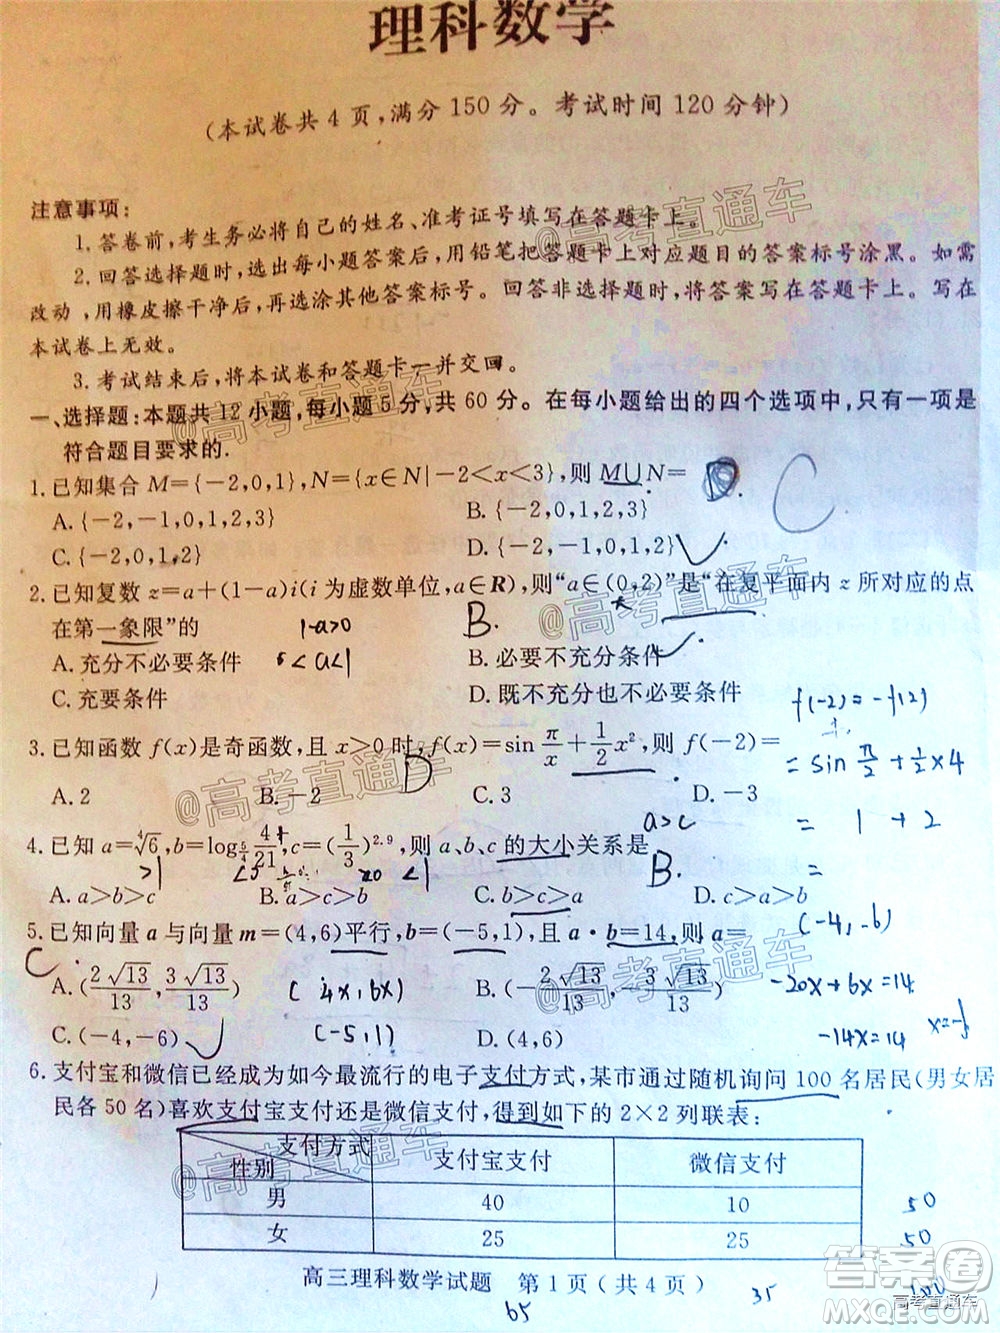 理科数学
(本试卷共4页,满分150分。考试时间120分钟)
注意事项:
1.答卷前,考生务必将自己的姓名、准考证号填写在答题卡上。
2.回答选择题时,选出每小题答案后,用铅笔把答题卡上对应题目的答案标号涂黑。如需
改动,用橡皮擦干净后,再选涂其他答案标号。回答非选择题时,将答案写在答题卡上。写在
本试卷上无效。
3.考试结束后,将本试卷和答题卡一并交回。
一、选择题:本题共12小题,每小题5分,共60分。在每小题给出的四个选项中,只有一项是
符合题目要求的.
1.已知集合M={-2,0,1},N={x∈N|-2<x<3},则M∪N= D. C
A.{-2,-1,0,1,2,3} B.{-2,0,1,2,3}
C.{-2,-1,0,1,2} D.{-2,0,1,2}
2.已知复数z=a+(1-a)i(i为虚数单位,a∈R),则“a∈(0,2)”是“在复平面内z所对应的点
在第一象限”的 1-a>0 B.
A.充分不必要条件 0<a<1 B.必要不充分条件
C.充要条件 D.既不充分也不必要条件
f(-2)=-f(2)
3.已知函数f(x)是奇函数,且x>0时,f(x)=sin π/x + 1/2 x²,则f(-2)= D
= sin π/2 + 1/2 ×4
A.2 B.-2 C.3 D.-3
a>c = 1+2
4.已知a=⁴√6,b=log_{5/4} 4/21,c=(1/3)^{2.9},则a、b、c的大小关系是 B.
>1 <0 >0 <1
A.a>b>c B.a>c>b C.b>c>a D.c>a>b
5.已知向量a与向量m=(4,6)平行,b=(-5,1),且a·b=14,则a= (-4,-6)
C.
A.(2√13/13,3√13/13) (4x,6x) B.(-2√13/13,-3√13/13) -20x+6x=14
C.(-4,-6) (-5,1) D.(4,6) -14x=14 x=-1
6.支付宝和微信已经成为如今最流行的电子支付方式,某市通过随机询问100名居民(男女居
民各50名)喜欢支付宝支付还是微信支付,得到如下的2×2列联表:
支付方式 支付宝支付 微信支付
性别
男 40 10 50
女 25 25 50
高三理科数学试题 第1页(共4页)
65 35 100
@高考直通车
@高考直通车
@高考直通车
@高考直通车
@高考直通车
@高考直通车
@高考直通车
答案圈
MXQE.COM
高考直通车